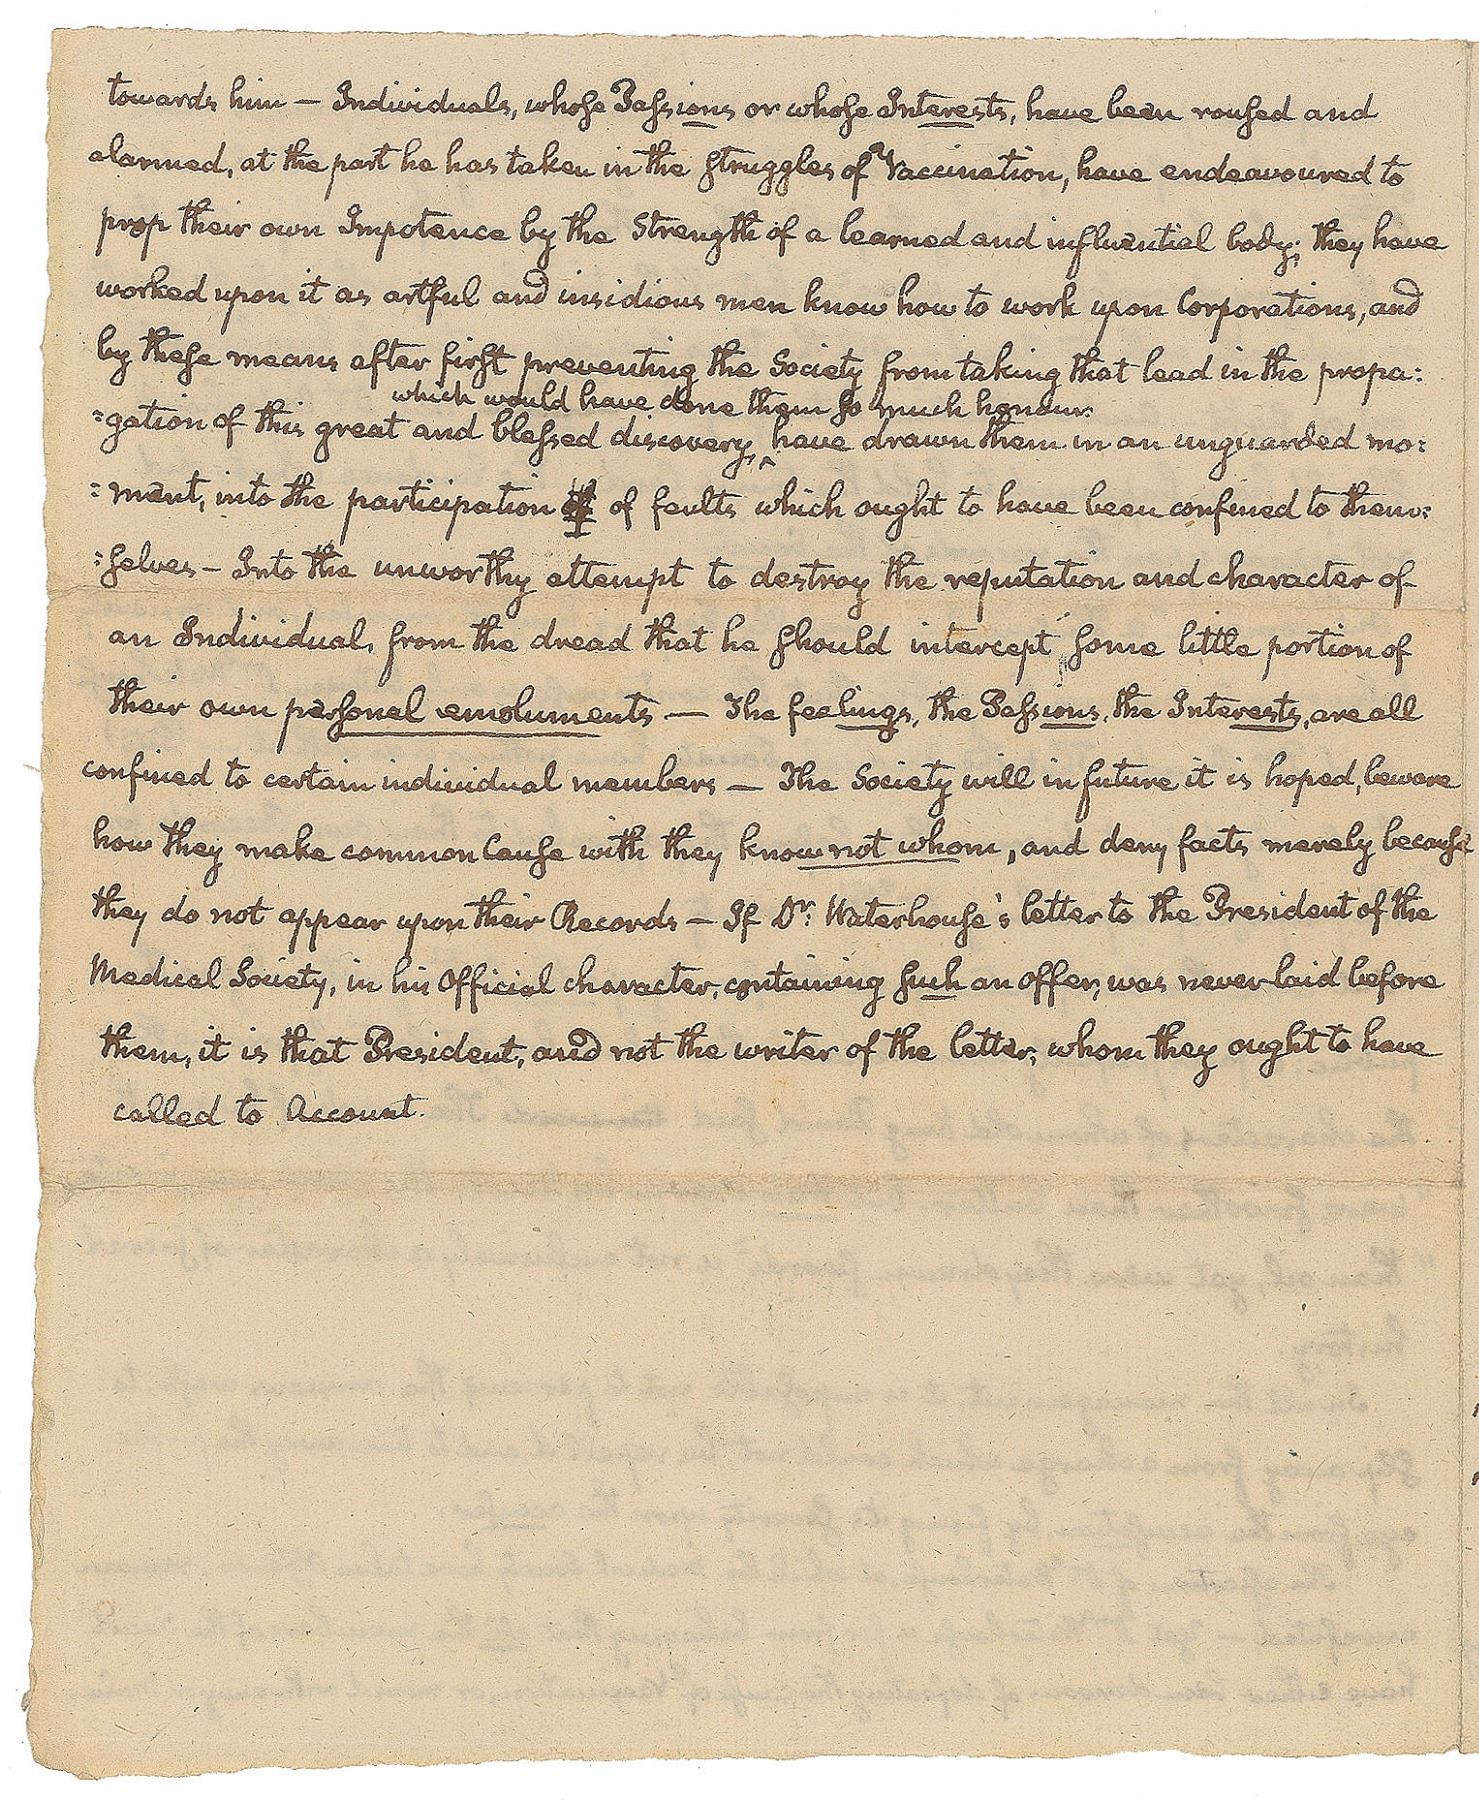 towards him — Individuals, whose Passions or whose Interests, have been roused and
alarmed, at the part he has taken in the struggles of Vaccination, have endeavoured to
prop their own Impotence by the Strength of a learned and influential body; they have
worked upon it as artful and insidious men know how to work upon Corporations, and
by these means after first preventing the Society from taking that lead in the propa:
which would have done them so much honour:
:gation of this great and blessed discovery, ‸ have drawn them in an unguarded mo:
:ment, into the participation of faults which ought to have been confined to them:
:selves — Into the unworthy attempt to destroy the reputation and character of
an Individual, from the dread that he should intercept some little portion of
their own personal emoluments — The feelings, the Passions, the Interests, are all
confined to certain individual members — The Society will in future it is hoped, beware
how they make common Cause with they know not whom, and deny facts merely because
they do not appear upon their Records — If Dr: Waterhouse's letter to the President of the
Medical Society, in his Official character, containing such an offer, was never laid before
them, it is that President, and not the writer of the letter, whom they ought to have
called to Account.